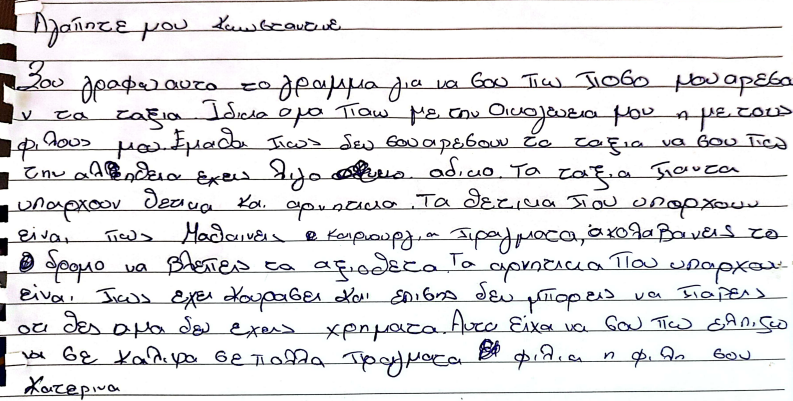 Αγαπητε μου Κωνσταντινε
Σου γραφω αυτο το γραμμα για να σου πω ποσο μου αρεσου
ν τα ταξια. Ιδικα αμα παω με την Οικολενεια μου η με τους
φιλους μου. Εμαθα πως δεν σου αρεσουν το ταξια να σου πω
την αληθεια εχεις λιγο αδικο. Τα ταξια παντα
υπαρχουν θετικα και αρνητικα. Τα θετικα που υπαρχουν
ειναι πως Μαθαινεις καινιουργια πραγματα, αχολαβανεις το
δρομο να βλεπεις τα αξιοθετα. Τα αρνητικα που υπαρχουν
ειναι πως εχει κουρασει και επισης δεν μπορεις να παρεις
οτι θες αμα δεν εχεις χρηματα. Αυτα ειχα να σου πω ελπιζω
να σε καλιψα σε πολλα πραγματα φιλια η φιλη σου
Κατερινα